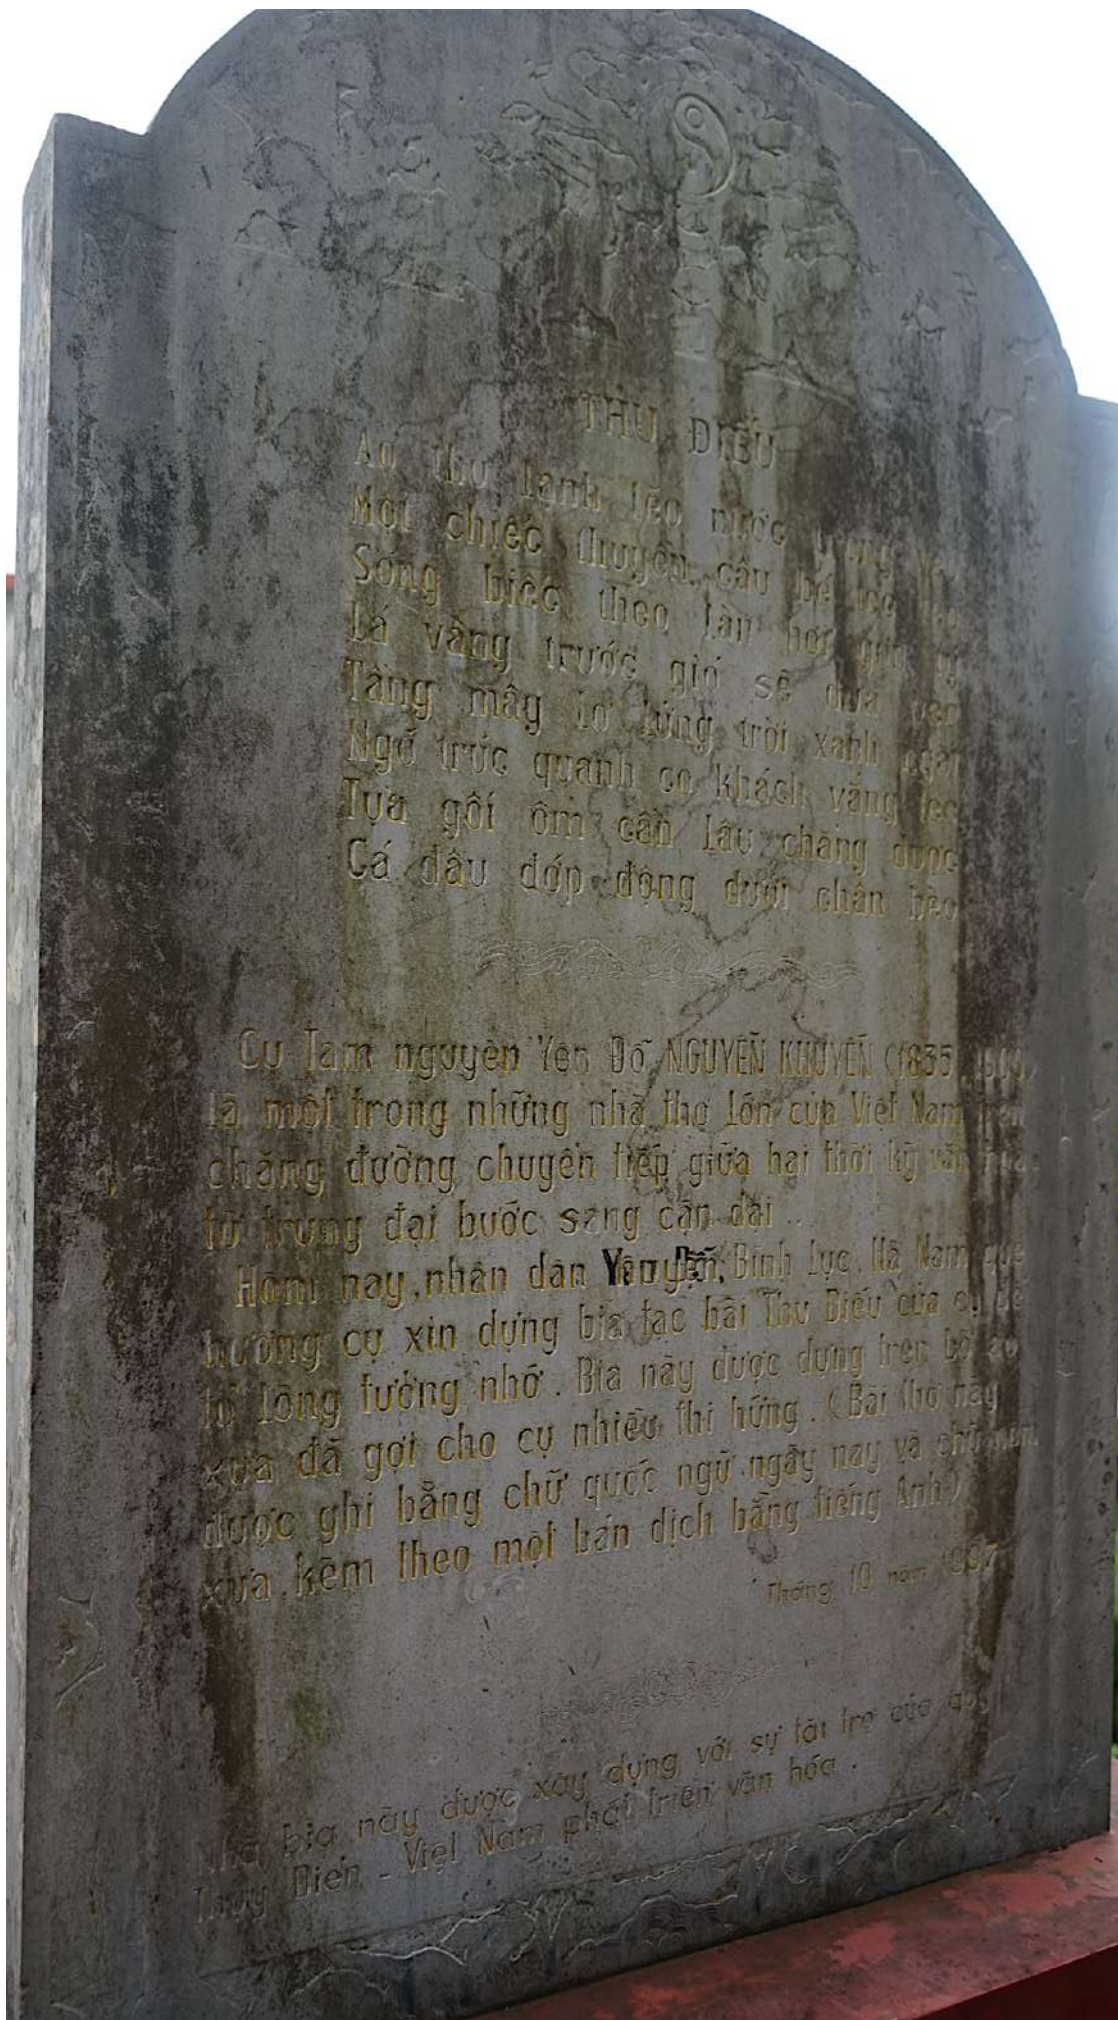 THU ĐIẾU
Ao thu lạnh lẽo nước trong veo
Một chiếc thuyền câu bé tẻo teo
Sóng biếc theo làn hơi gợn tý
Lá vàng trước gió sẽ đưa vèo
Tầng mây lơ lửng trời xanh ngắt
Ngõ trúc quanh co khách vắng teo
Tựa gối ôm cần lâu chẳng được
Cá đâu đớp động dưới chân bèo
Cụ Tam nguyên Yên Đổ NGUYỄN KHUYẾN (1835
là một trong những nhà thơ lớn của Việt Nam trên
chặng đường chuyển tiếp giữa hai thời kỳ văn hóa:
từ trung đại bước sang cận đại..
Hôm nay, nhân dân Bình Lục, Hà Nam quê
hương cụ xin dựng bia tạc bài Thu Điếu của cụ để
tỏ lòng tưởng nhớ. Bia này được dựng trên bờ ao
xưa đã gợi cho cụ nhiều thi hứng. (Bài thơ này
được ghi bằng chữ quốc ngữ ngày nay và chữ nôm
xưa, kèm theo một bản dịch bằng tiếng Anh)
Tháng 10 năm 1997
Nhà bia này được xây dựng với sự tài trợ của quỹ
Thụy Điển - Việt Nam phát triển văn hóa.